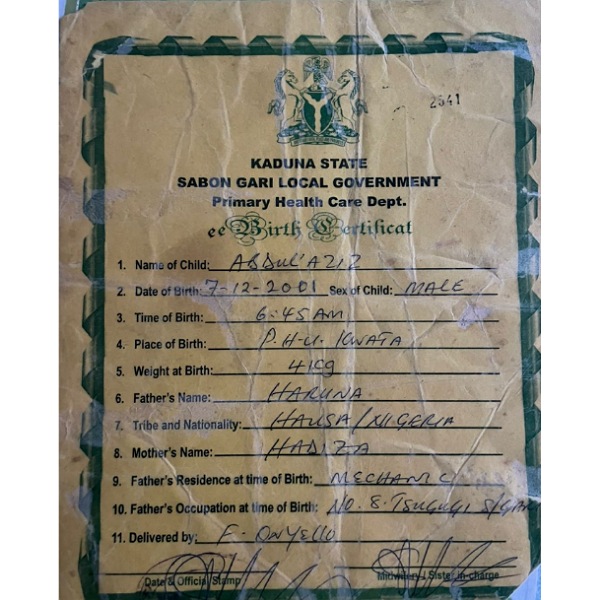 2541
KADUNA STATE
SABON GARI LOCAL GOVERNMENT
Primary Health Care Dept.
ee Birth Certificat
1. Name of Child: ABDUL'AZIZ
2. Date of Birth: 7-12-2001 Sex of Child: MALE
3. Time of Birth: 6:45AM
4. Place of Birth: P.H.U. KWATA
5. Weight at Birth: 4KG
6. Father's Name: HARUNA
7. Tribe and Nationality: HAUSA/NIGERIA
8. Mother's Name: HADIZA
9. Father's Residence at time of Birth: MECHANIC
10. Father's Occupation at time of Birth: NO. 8. TSUGUGI S/GAR
11. Delivered by: F. ONYELLO
Date & Official Stamp Midwifery / Sister in-charge